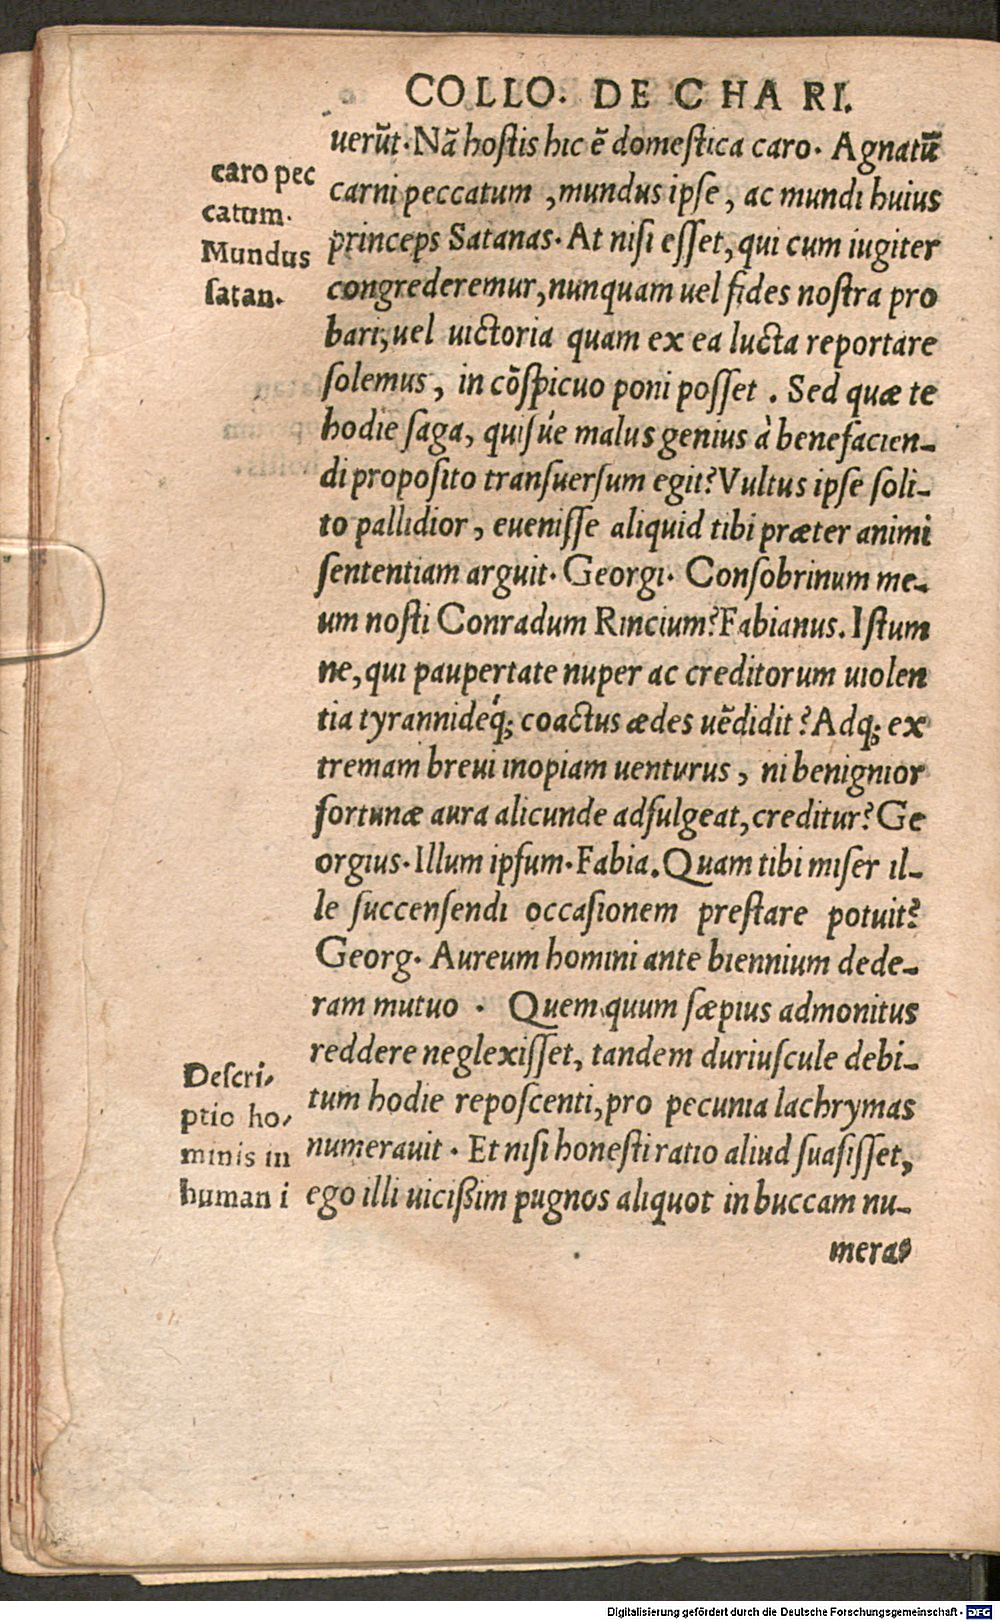 COLLO. DE CHARI.
uerūt. Nā hostis hic ē domestica caro. Agnatū
carni peccatum, mundus ipse, ac mundi huius
princeps Satanas. At nisi esset, qui cum iugiter
congrederemur, nunquam uel fides nostra pro
bari, uel uictoria quam ex ea lucta reportare
solemus, in cōspicuo poni posset. Sed quæ te
hodie saga, quisúe malus genius à benefacien-
di proposito transuersum egit? Vultus ipse soli-
to pallidior, euenisse aliquid tibi præter animi
sententiam arguit. Georgi. Consobrinum me-
um nosti Conradum Rincium? Fabianus. Istum
ne, qui paupertate nuper ac creditorum uiolen
tia tyrannideq́; coactus ædes uēdidit? Adq; ex
tremam breui inopiam uenturus, ni benignior
fortunæ aura alicunde adfulgeat, creditur? Ge
orgius. Illum ipsum. Fabia. Quam tibi miser il-
le succensendi occasionem prestare potuit?
Georg. Aureum homini ante biennium dede-
ram mutuo. Quem quum sæpius admonitus
reddere neglexisset, tandem duriuscule debi-
tum hodie reposcenti, pro pecunia lachrymas
numerauit. Et nisi honesti ratio aliud suasisset,
ego illi uicißim pugnos aliquot in buccam nu-
meras
caro pec
catum.
Mundus
satan.
Descri-
ptio ho-
minis in
humani
Digitalisierung gefördert durch die Deutsche Forschungsgemeinschaft - DFG